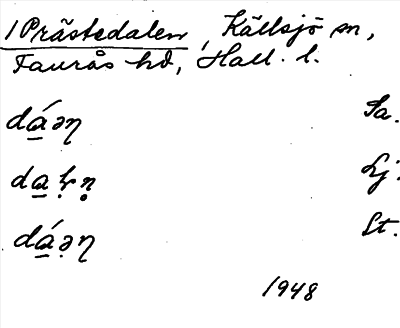 1 Prästedalen, Källsjö sn,
Faurås hd, Hall. l.
dá̱əɳ Sa.
Lj.
dá̱ə̣ɳ St.
1948